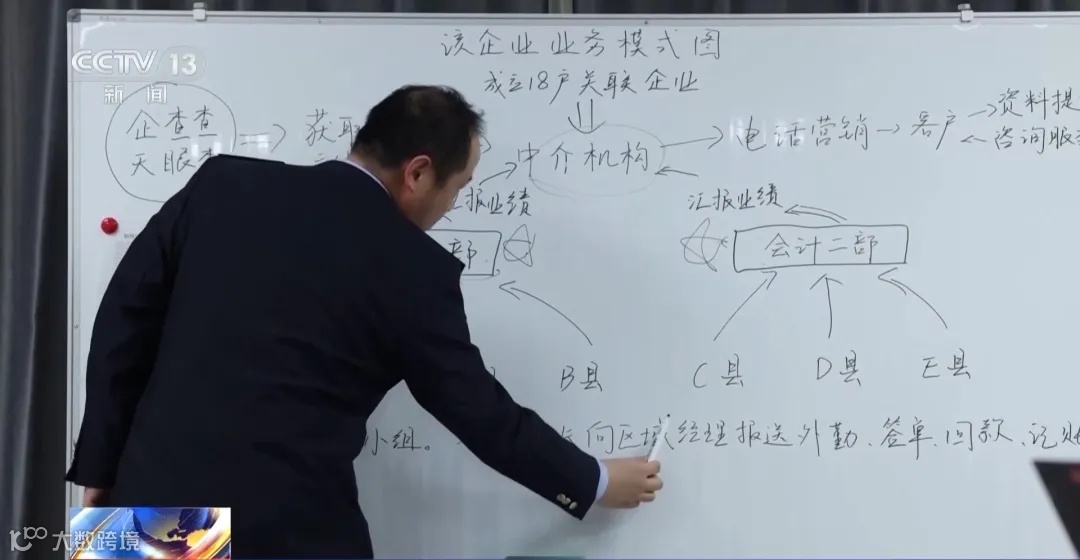 CCTV 13
新闻
该企业业务模式图
成立18户关联企业
企查查
天眼
获取
中介机构
电话营销
客户
资料提
咨询服
汇报业绩
报业绩
部
会计二部
B县
C县
D县
E县
小组。
向区域经理报送外勤、签单、回款、记账
大数跨境